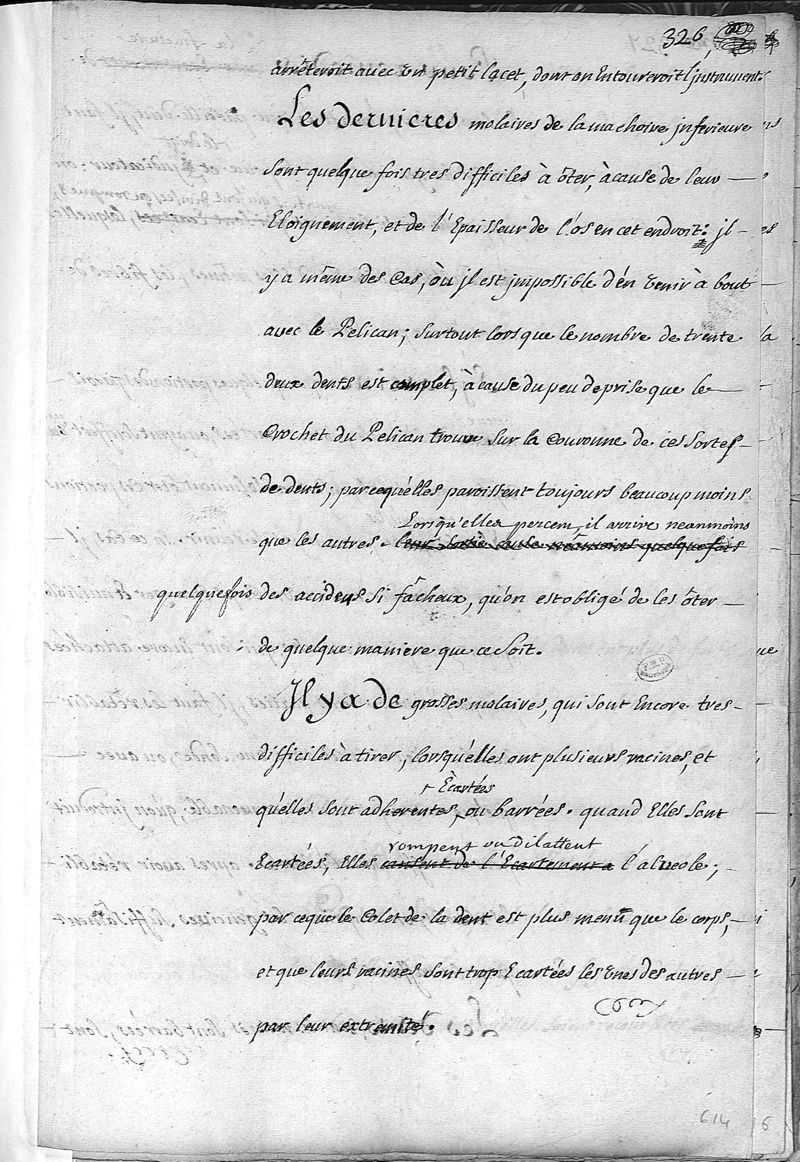 326
arrêteroit avec un petit lacet, dont on Entoureroit l'instrument.
Les dernieres molaires de la machoire jnferieure
sont quelque fois tres difficiles à ôter, à cause de leur
Eloignement, et de l'Epaisseur de l'os en cet endroit: jl
y a même des Cas, où jl est jmpossible d'en venir à bout
avec le Pelican; surtout lorsque le nombre de trente
deux dents est complet, à cause du peu de prise que le
Crochet du Pelican trouve sur la Couronne de ces sortes
de dents; parcequ'elles paroissent toujours beaucoup moins
Lorsqu'elles percent, il arrive neanmoins
que les autres. leur sortie cause néanmoins quelquefois
quelquefois des accidens si fâcheux, qu'on est obligé de les ôter
de quelque maniere que ce soit.
Jl y a de grosses molaires, qui sont Encore tres
difficiles à tirer, lorsqu'elles ont plusieurs racines, et
+ Ecartées
qu'elles sont adherentes, ou barrées. quand Elles sont
rompent ou dilattent
Ecartées, Elles causent de l'Ecartement a l'alveole;
parceque le Colet de la dent est plus menu que le corps,
et que leurs racines sont trop Ecartées les unes des autres
par leur extremité.
614
6